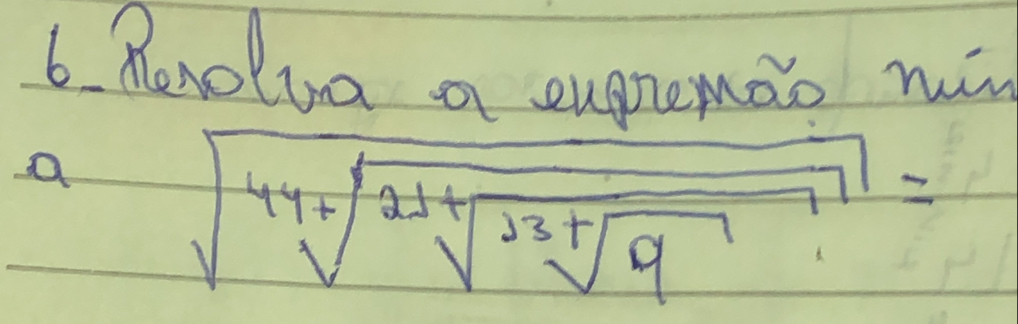 6- Resolva a expressão nún
a √44+√21+√13+√9 =